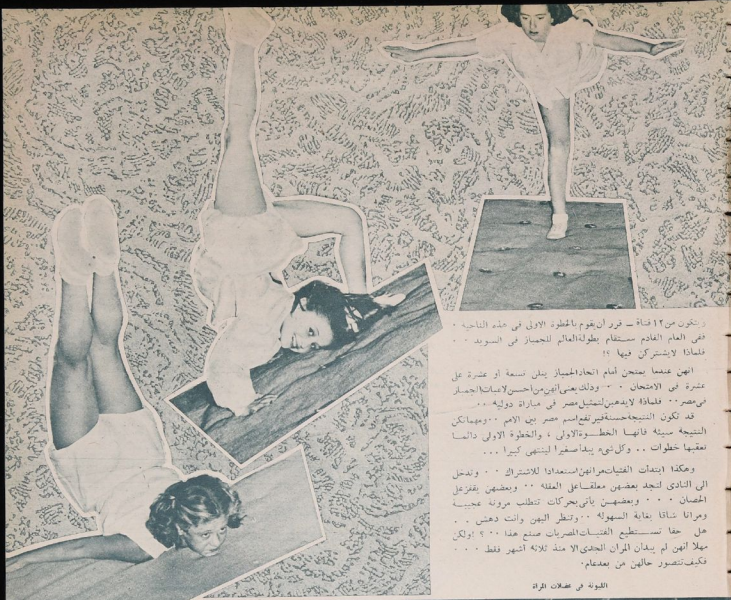 ويتكون من ١٢ فتاة ــ قرر أن يقوم بالخطوة الاولى فى هذه الناحية .
ففى العام القادم ستقام بطولة العالم للجمباز فى السويد . .
فلماذا لا يشتركن فيها ؟!
انهن عندما يمتحن أمام اتحاد الجمباز ينلن تسعة أو عشرة على
عشرة فى الامتحان . . . وذلك يعنى أنهن من أحسن لاعبات الجمباز
فى مصر . . فلماذا لا يدعين لتمثيل مصر فى مباراة دولية . . .
قد تكون النتيجة حسنة فيرتفع اسم مصر بين الأمم . . ومهما تكن
النتيجة سيئة فانها الخطوة الاولى ، والخطوة الاولى دائما
تعقبها خطوات . . وكل شىء يبدأ صغيرا لينتهى كبيرا . . .
وهكذا ابتدأت الفتيات مرانهن استعدادا للاشتراك . . وتدخل
الى النادى لتجد بعضهن معلقا على العقلة . . وبعضهن يقفز على
الحصان . . . وبعضهن يأتى بحركات تتطلب مرونة عجيبة
ومرانا شاقا بغاية السهولة . . وتنظر اليهن وأنت دهش . .
هل حقا تستطيع الفتيات المصريات صنع هذا . . ؟ ! ولكن
مهلا انهن لم يبدأن المران الجدى الا منذ ثلاثة أشهر فقط . . .
فكيف تتصور حالهن من بعد عام .
الليونة فى عضلات المرأة